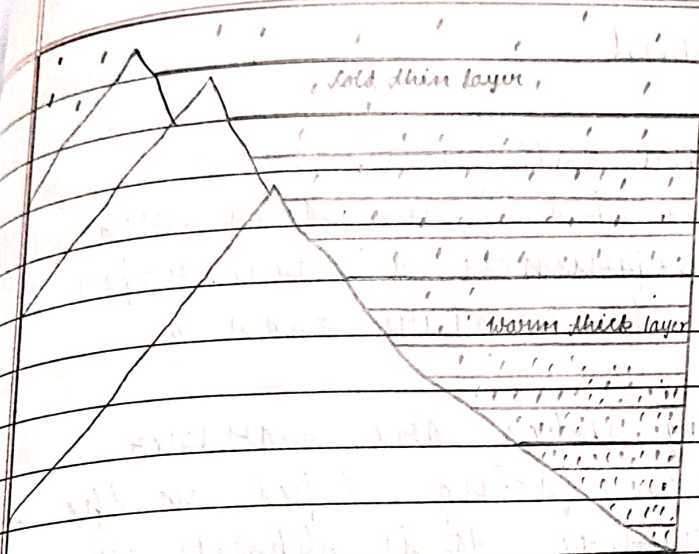 cold thin layer
warm thick layer